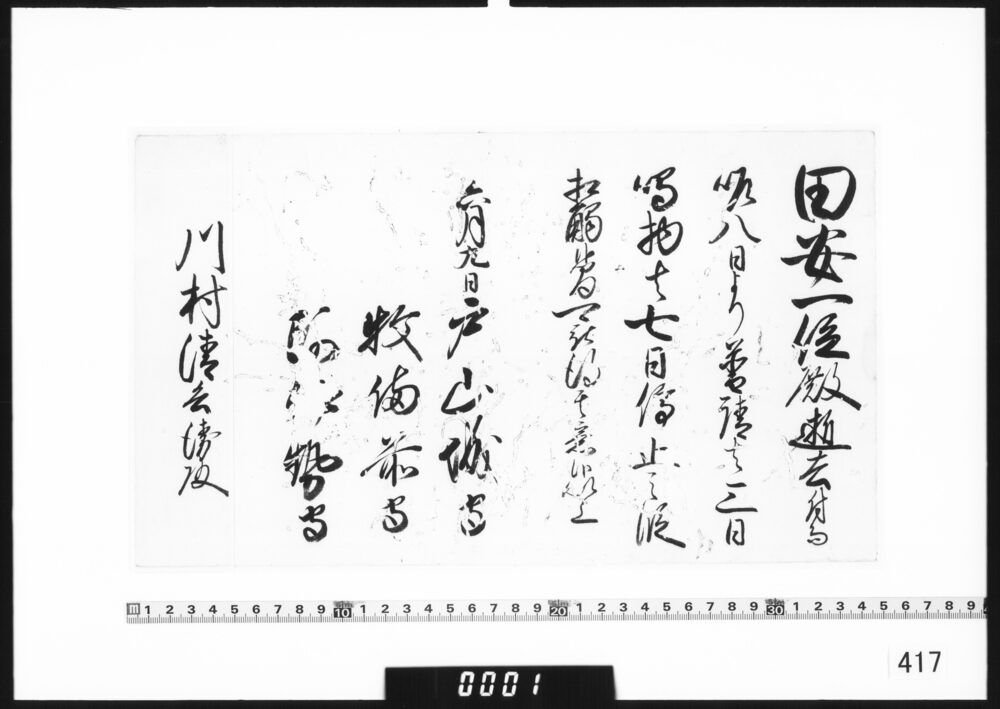 田安一位殿逝去付而
昨八日より普請者三日
鳴物者七日停止之段
相触候間可被得其意候以上
六月九日 戸山城守
牧備前守
阿伊勢守
川村清兵衛殿
m 1 2 3 4 5 6 7 8 9 10 1 2 3 4 5 6 7 8 9 20 1 2 3 4 5 6 7 8 9 30 1 2 3 4 5 6 7 8 9
417
0001